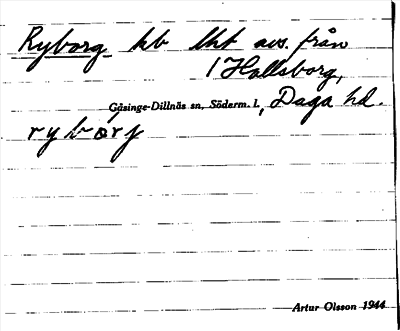 Ryborg hb lht avs. från
1 Hallsborg,
Gåsinge-Dillnäs sn, Söderm. l., Daga hd.
rybǫrj
Artur Olsson 1944